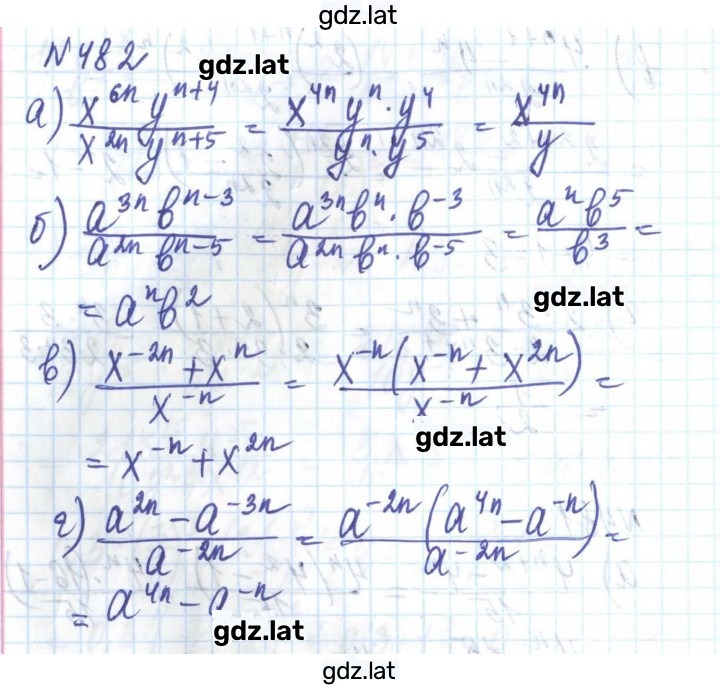 gdz.lat
N482
gdz.lat
а) x^{6n} y^{n+4} / x^{2n} y^{n+5} = x^{4n} y^n · y^4 / y^n · y^5 = x^{4n} / y
б) a^{3n} b^{n-3} / a^{2n} b^{n-5} = a^{3n} b^n · b^{-3} / a^{2n} b^n · b^{-5} = a^n b^5 / b^3 =
gdz.lat
= a^n b^2
в) x^{-2n} + x^n / x^{-n} = x^{-n} (x^{-n} + x^{2n}) / x^{-n} =
gdz.lat
= x^{-n} + x^{2n}
г) a^{2n} - a^{-3n} / a^{-2n} = a^{-2n} (a^{4n} - a^{-n}) / a^{-2n} =
= a^{4n} - a^{-n}
gdz.lat
gdz.lat